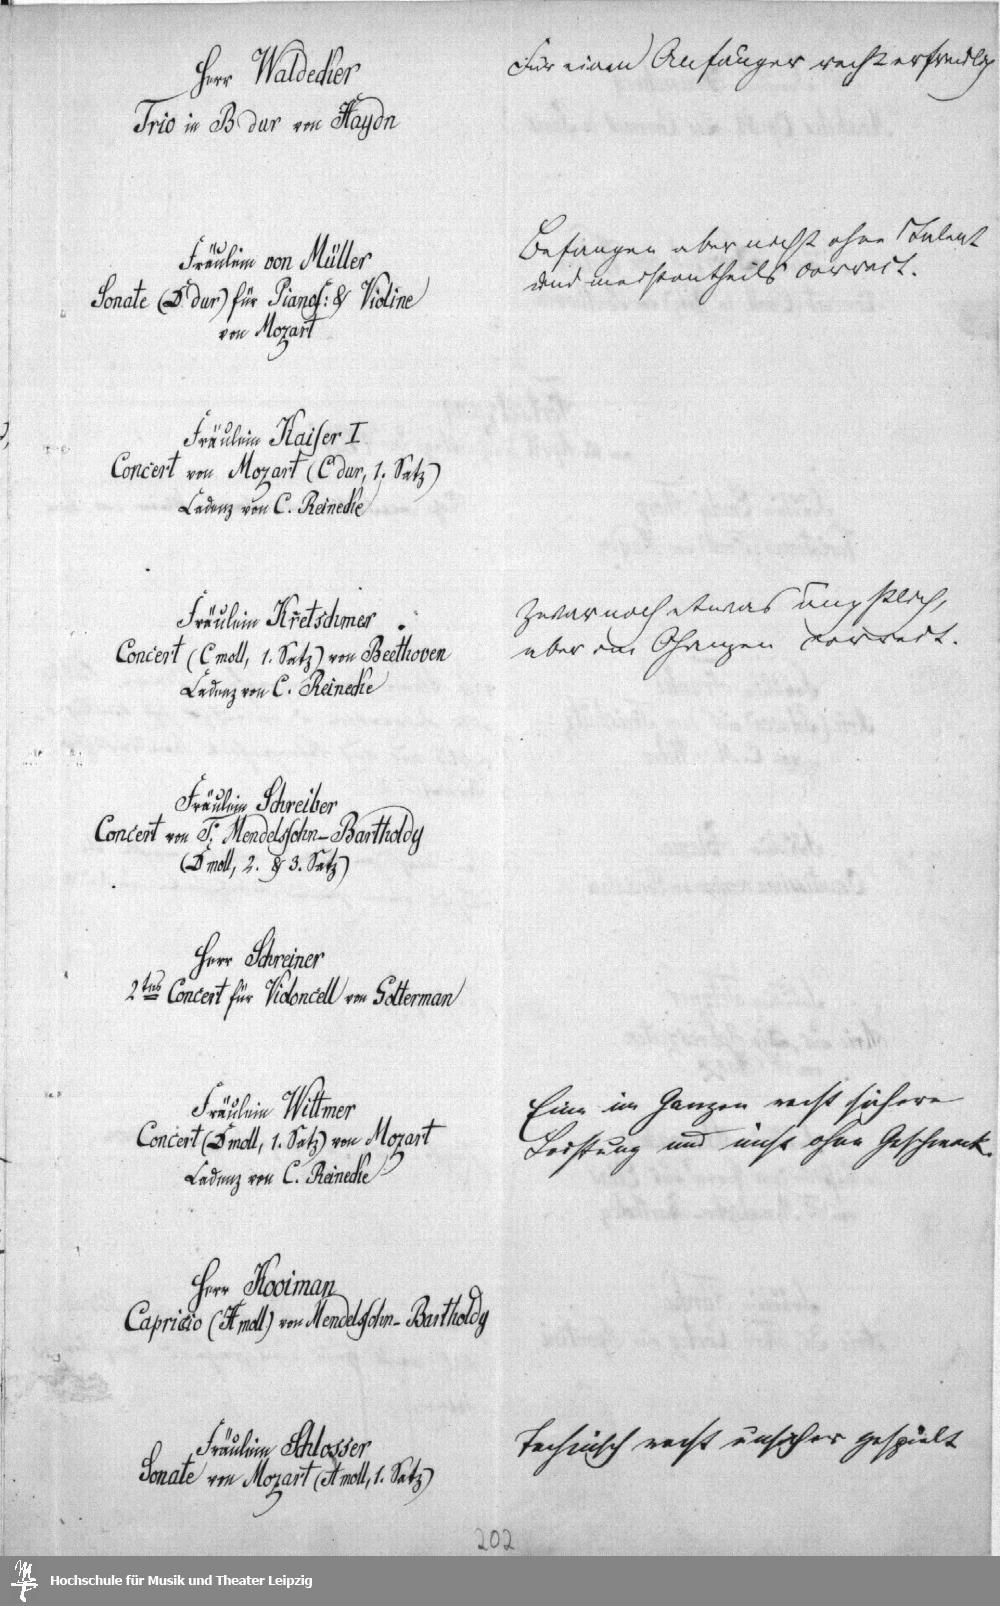 Herr Waldecker
Trio in B dur von Haydn
Für einen Anfänger recht erfreulich
Fräulein von Müller
Sonate (D dur) für Pianof: & Violine
von Mozart
Befangen aber nicht ohne Talent
und meistentheils correct.
Fräulein Kaiser I
Concert von Mozart (C dur, 1. Satz)
Cadenz von C. Reinecke
Fräulein Kretschmer
Concert (C moll, 1. Satz) von Beethoven
Cadenz von C. Reinecke
Zwar noch etwas ängstlich,
aber im Ganzen correct.
Fräulein Schreiber
Concert von F. Mendelssohn-Bartholdy
(D moll, 2. & 3. Satz)
Herr Schreiner
2tes Concert für Violoncell von Golterman
Fräulein Wittmer
Concert (D moll, 1. Satz) von Mozart
Cadenz von C. Reinecke
Eine im Ganzen recht sichere
Leistung und nicht ohne Geschmack.
Herr Kooiman
Capriccio (A moll) von Mendelssohn-Bartholdy
Fräulein Schlosser
Sonate von Mozart (A moll, 1. Satz)
Technisch recht unsicher gespielt
202
Hochschule für Musik und Theater Leipzig